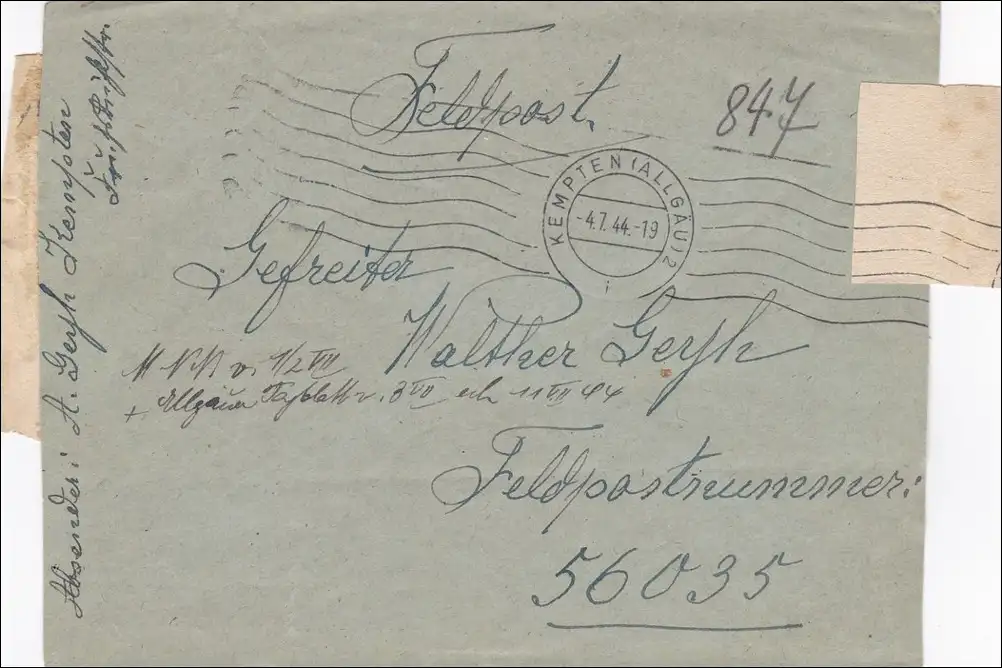 Feldpost.
847
KEMPTEN (ALLGÄU) 2
-4.7.44.-19
i
Gefreiter
Walther Gersh
M N N v. 1/2 VII
+ Allgäuer Tagblatt v. 3 VII erh 11 VII 44
Feldpostnummer:
56035
Absender: A. Gersh Kempten